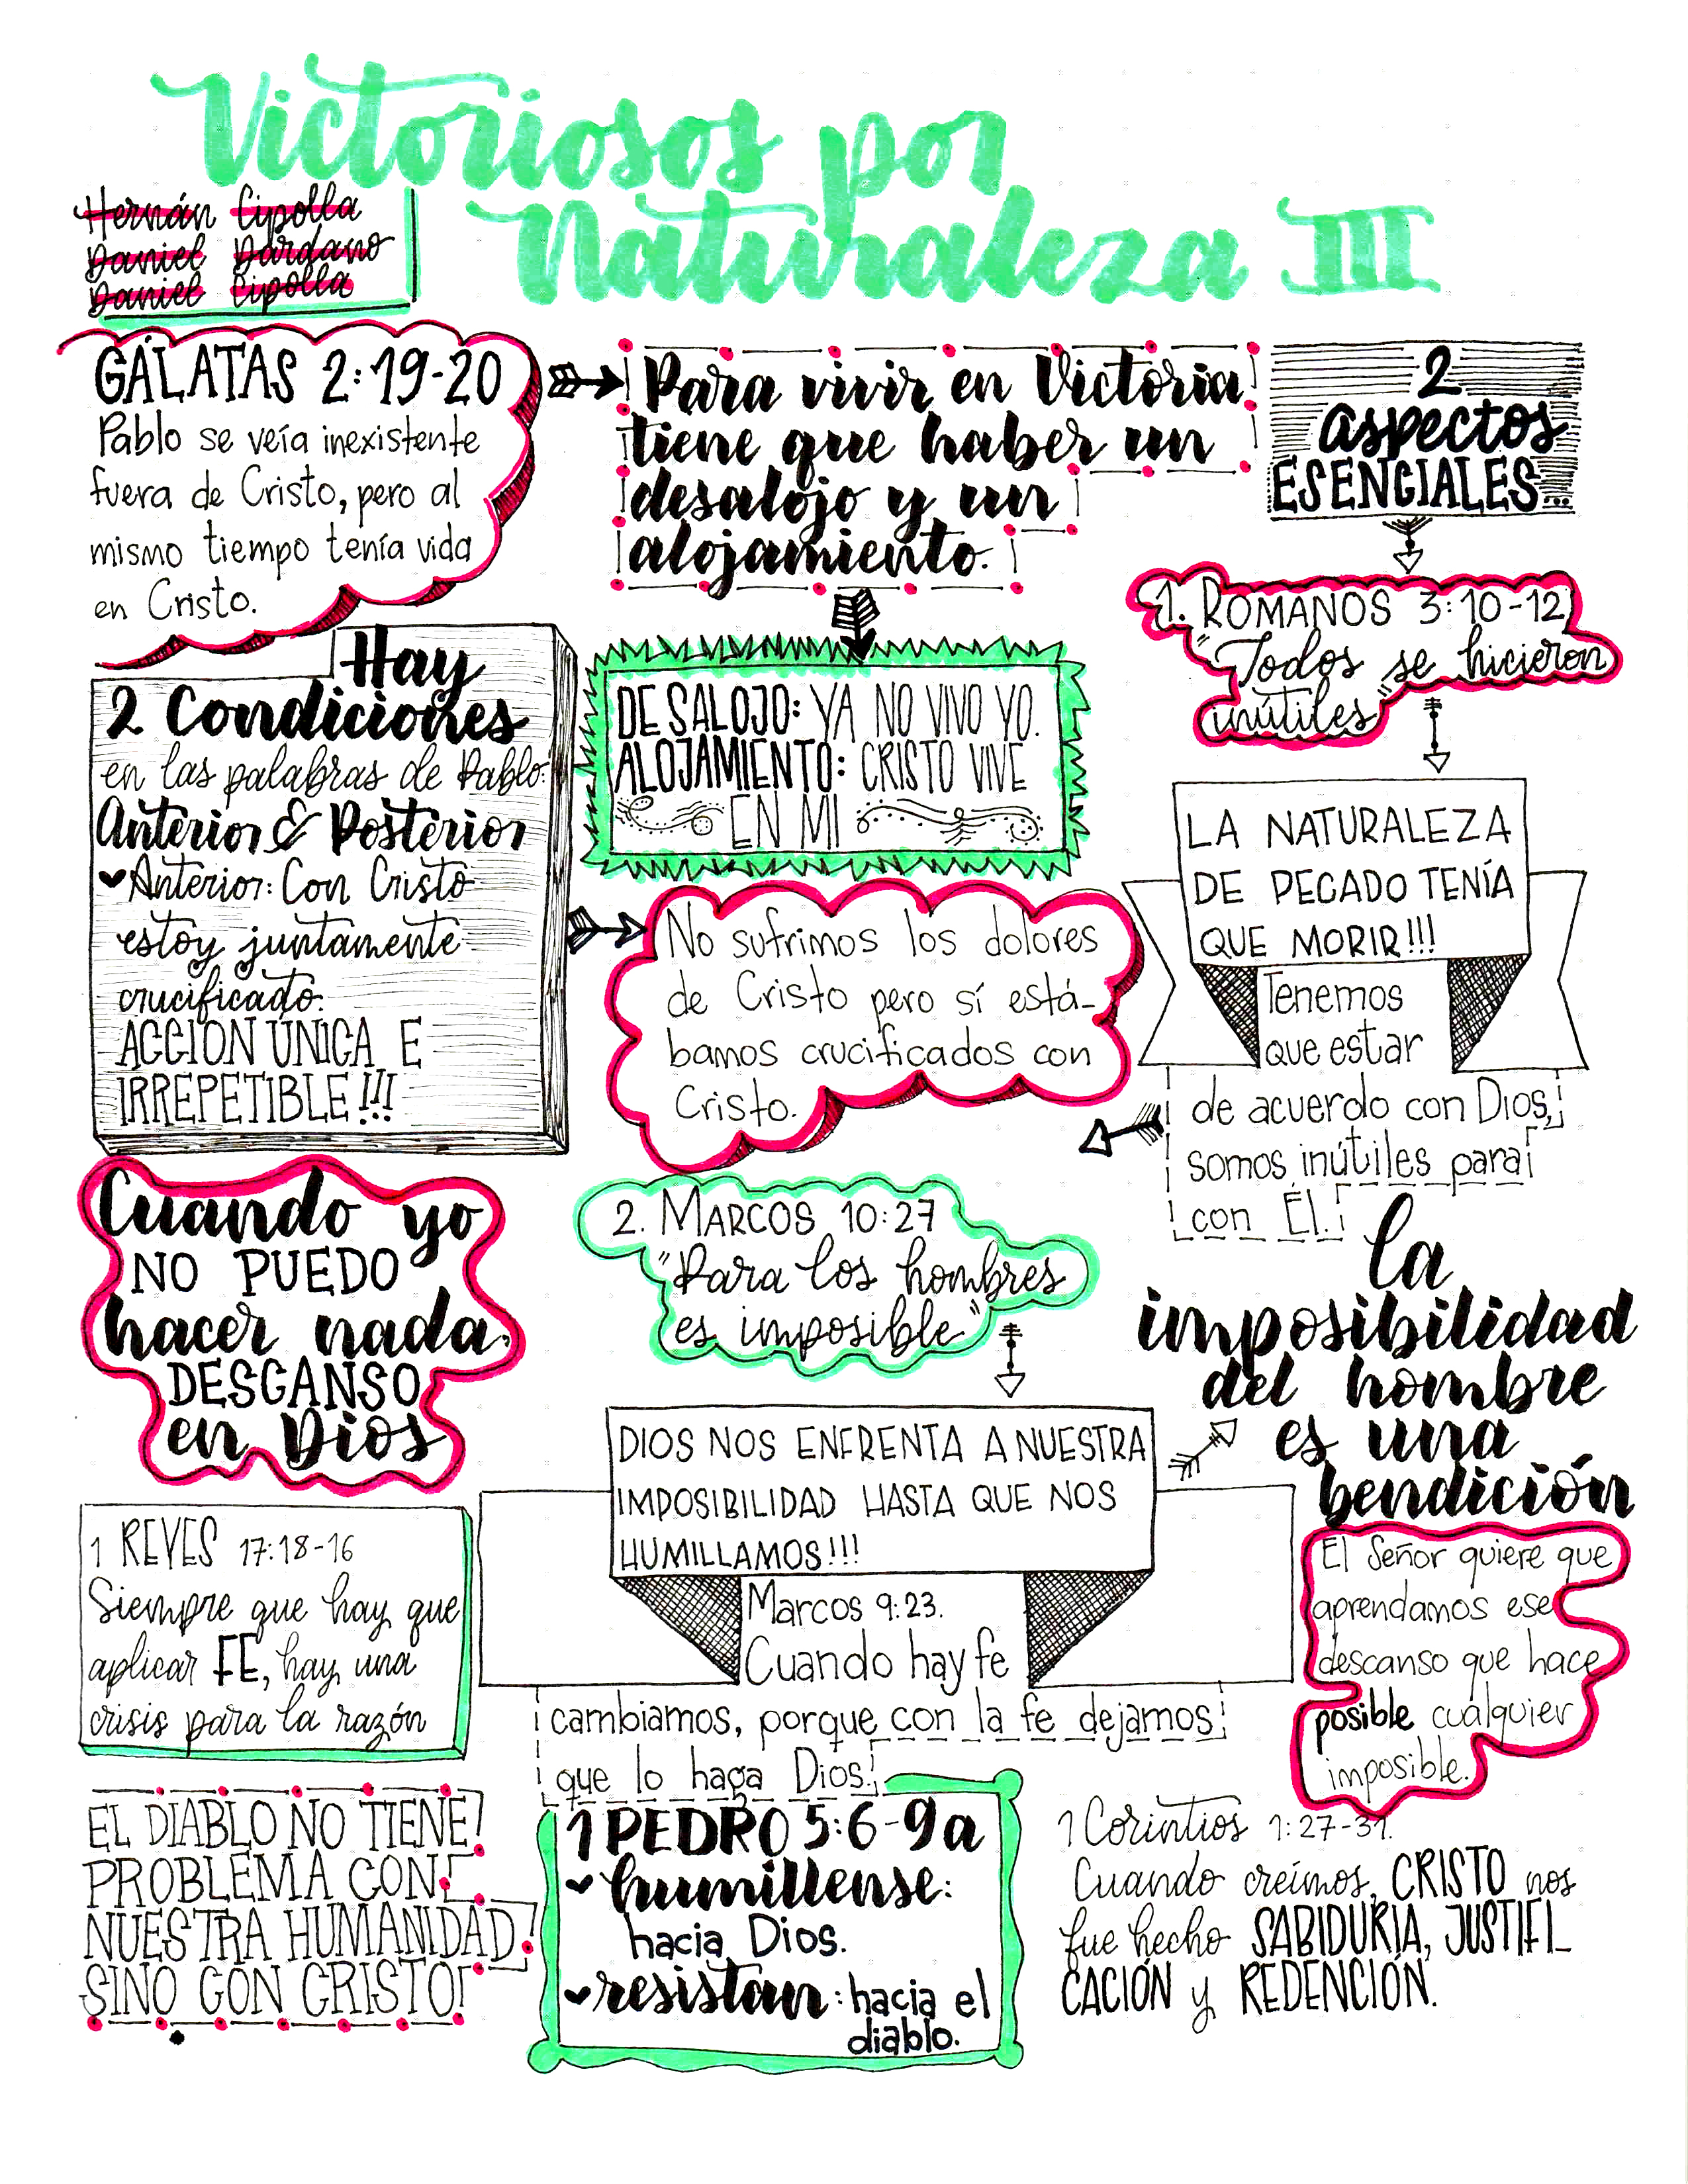 Victoriosos por
Naturaleza III
Hernán Cipolla
Daniel Dardano
Daniel Cipolla
GÁLATAS 2:19-20
Pablo se veía inexistente
fuera de Cristo, pero al
mismo tiempo tenía vida
en Cristo.
Para vivir en Victoria
tiene que haber un
desalojo y un
alojamiento.
2
aspectos
ESENCIALES...
1. ROMANOS 3:10-12
"Todos se hicieron
inútiles"
Hay
2 Condiciones
en las palabras de Pablo:
Anterior & Posterior
Anterior: Con Cristo
estoy juntamente
crucificado.
ACCIÓN ÚNICA E
IRREPETIBLE!!!
DESALOJO: YA NO VIVO YO.
ALOJAMIENTO: CRISTO VIVE
EN MI
No sufrimos los dolores
de Cristo pero sí está-
bamos crucificados con
Cristo.
LA NATURALEZA
DE PECADO TENÍA
QUE MORIR!!!
Tenemos
que estar
de acuerdo con Dios,
somos inútiles para
con Él.
Cuando yo
NO PUEDO
hacer nada,
DESCANSO
en Dios
2. MARCOS 10:27
"Para los hombres
es imposible"
la
imposibilidad
del hombre
es una
bendición
DIOS NOS ENFRENTA A NUESTRA
IMPOSIBILIDAD HASTA QUE NOS
HUMILLAMOS!!!
Marcos 9:23.
Cuando hay fe
cambiamos, porque con la fe dejamos
que lo haga Dios.
El Señor quiere que
aprendamos ese
descanso que hace
posible cualquier
imposible.
1 REYES 17:18-16
Siempre que hay que
aplicar FE, hay una
crisis para la razón
EL DIABLO NO TIENE
PROBLEMA CON
NUESTRA HUMANIDAD
SINO CON CRISTO!
1 PEDRO 5:6-9a
humillense:
hacia Dios.
resistan: hacia el
diablo.
1 Corintios 1:27-31.
Cuando creímos, CRISTO nos
fue hecho SABIDURÍA, JUSTIFI_
CACIÓN y REDENCIÓN.